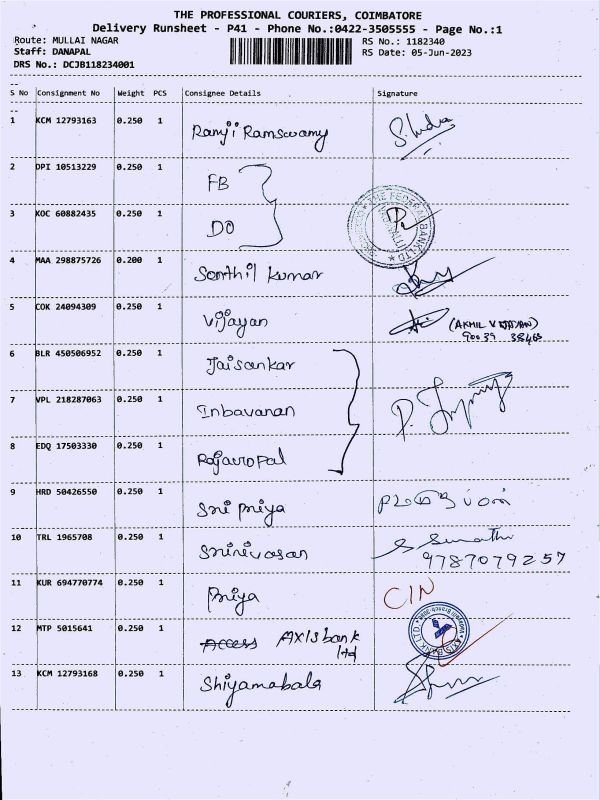 THE PROFESSIONAL COURIERS, COIMBATORE
Delivery Runsheet - P41 - Phone No.:0422-3505555 - Page No.:1
Route: MULLAI NAGAR RS No.: 1182340
Staff: DANAPAL RS Date: 05-Jun-2023
DRS No.: DCJB118234001
S No Consignment No Weight PCS Consignee Details Signature
1 KCM 12793163 0.250 1 Ranji Ramswamy
2 DPI 10513229 0.250 1 FB
3 KOC 60882435 0.250 1 DO THE FEDERAL BANK LTD
4 MAA 298875726 0.200 1 Senthil kumar
5 COK 24094309 0.250 1 Vijayan (AKHIL VIJAYAN)
90039 38463
6 BLR 450506952 0.250 1 Jaisankar
7 VPL 218287063 0.250 1 Inbavanan
8 EDQ 17503330 0.250 1 Rajavopal
9 HRD 50426550 0.250 1 Sri priya
10 TRL 1965708 0.250 1 Srinivasan S Sumathi
9787079257
11 KUR 694770774 0.250 1 Priya CIN
12 MTP 5015641 0.250 1 Access AXIS bank
ltd AXIS BANK LTD
13 KCM 12793168 0.250 1 Shiyamabala